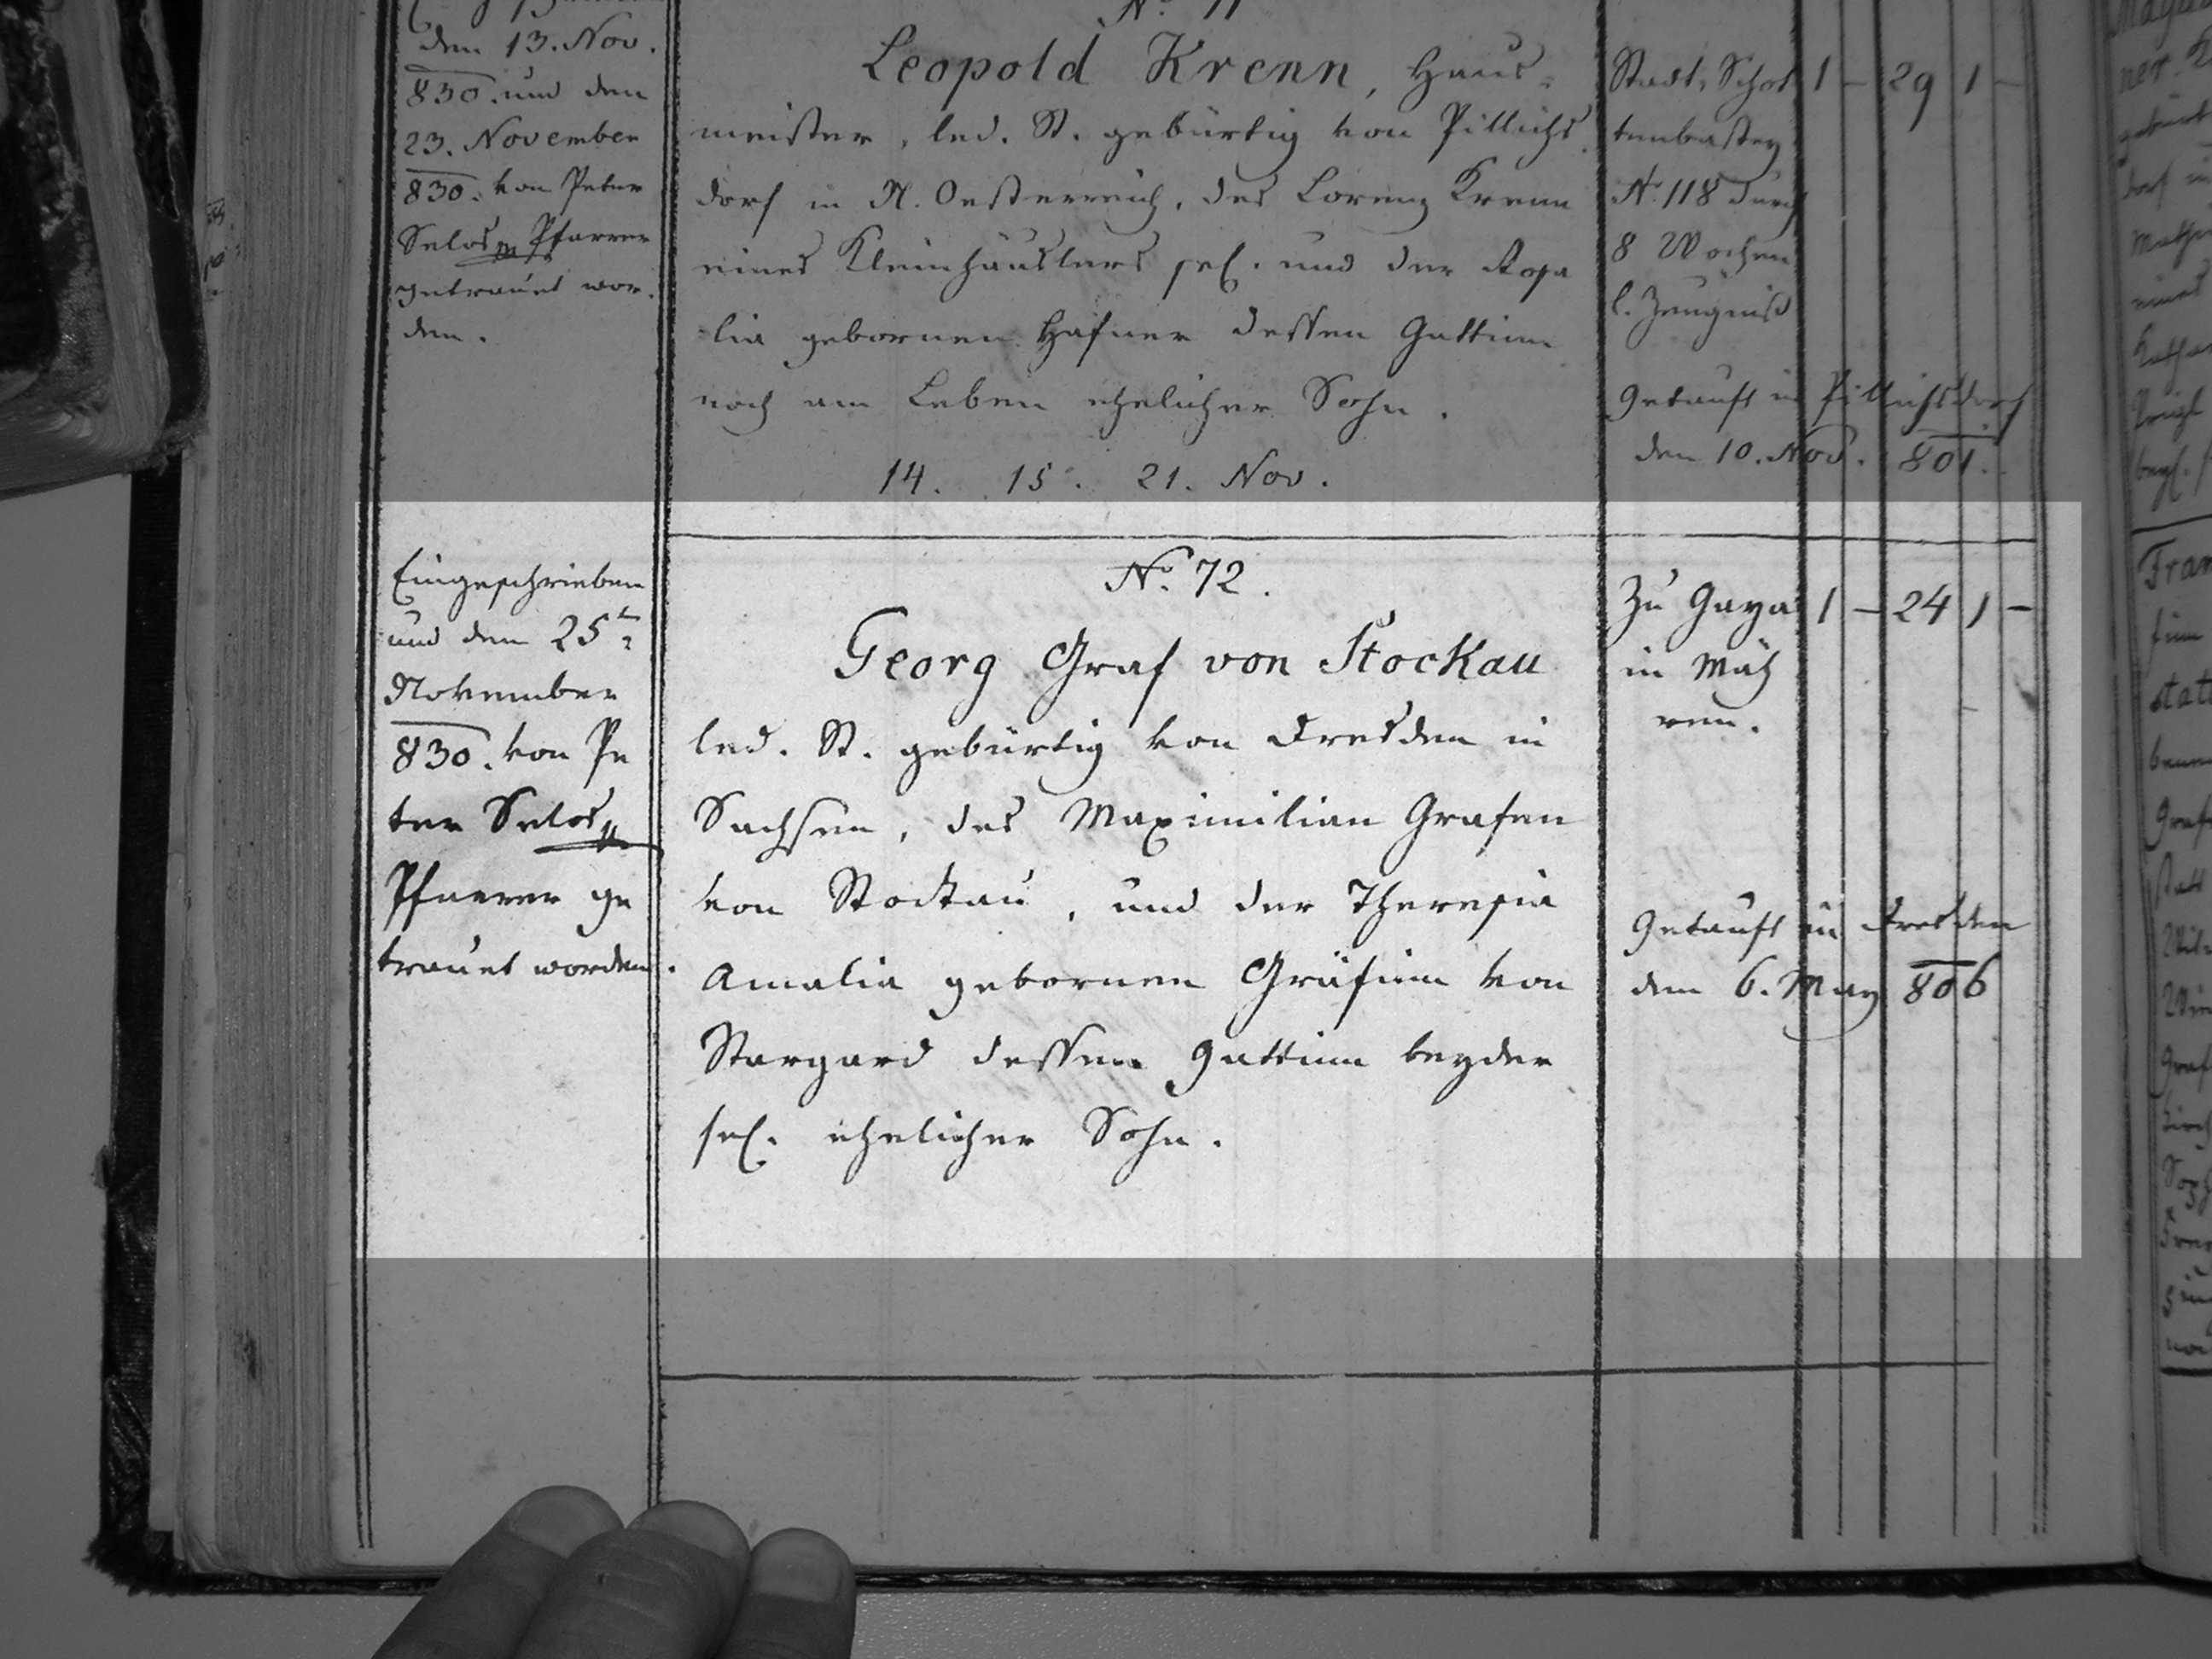 den 13. Nov.
830. und den
23. November
830. von Peter
Selos Pfarrer
getrauet wor.
den.
Leopold Krenn, Haus=
meister, led. St. gebürtig von Pillichs
dorf in N. Oesterreich, des Lorenz Krenn
eines Kleinhäuslers sel. und der Rosa
lia gebornen Hafner dessen Gattinn
noch am Leben ehelicher Sohn.
14. 15. 21. Nov.
Stadt, Schot
tenbastey
N. 118 durch
8 Wochen
l. Zeugniß
1 – 29 1 –
Getauft in Pillichsdorf
den 10. Nov. 801.
Eingeschrieben
und den 25t=
November
830. von Pe
ter Selos
Pfarrer ge
trauet worden.
No. 72.
Georg Graf von Stockau
led. St. gebürtig von Dresden in
Sachsen, des Maximilian Grafen
von Stockau, und der Theresia
Amalia gebornen Gräfinn von
Stargard dessen Gattinn beyder
sel. ehelicher Sohn.
Zu Gaya
in Mäh
ren.
1 – 24 1 –
Getauft in Dresden
den 6. May 806